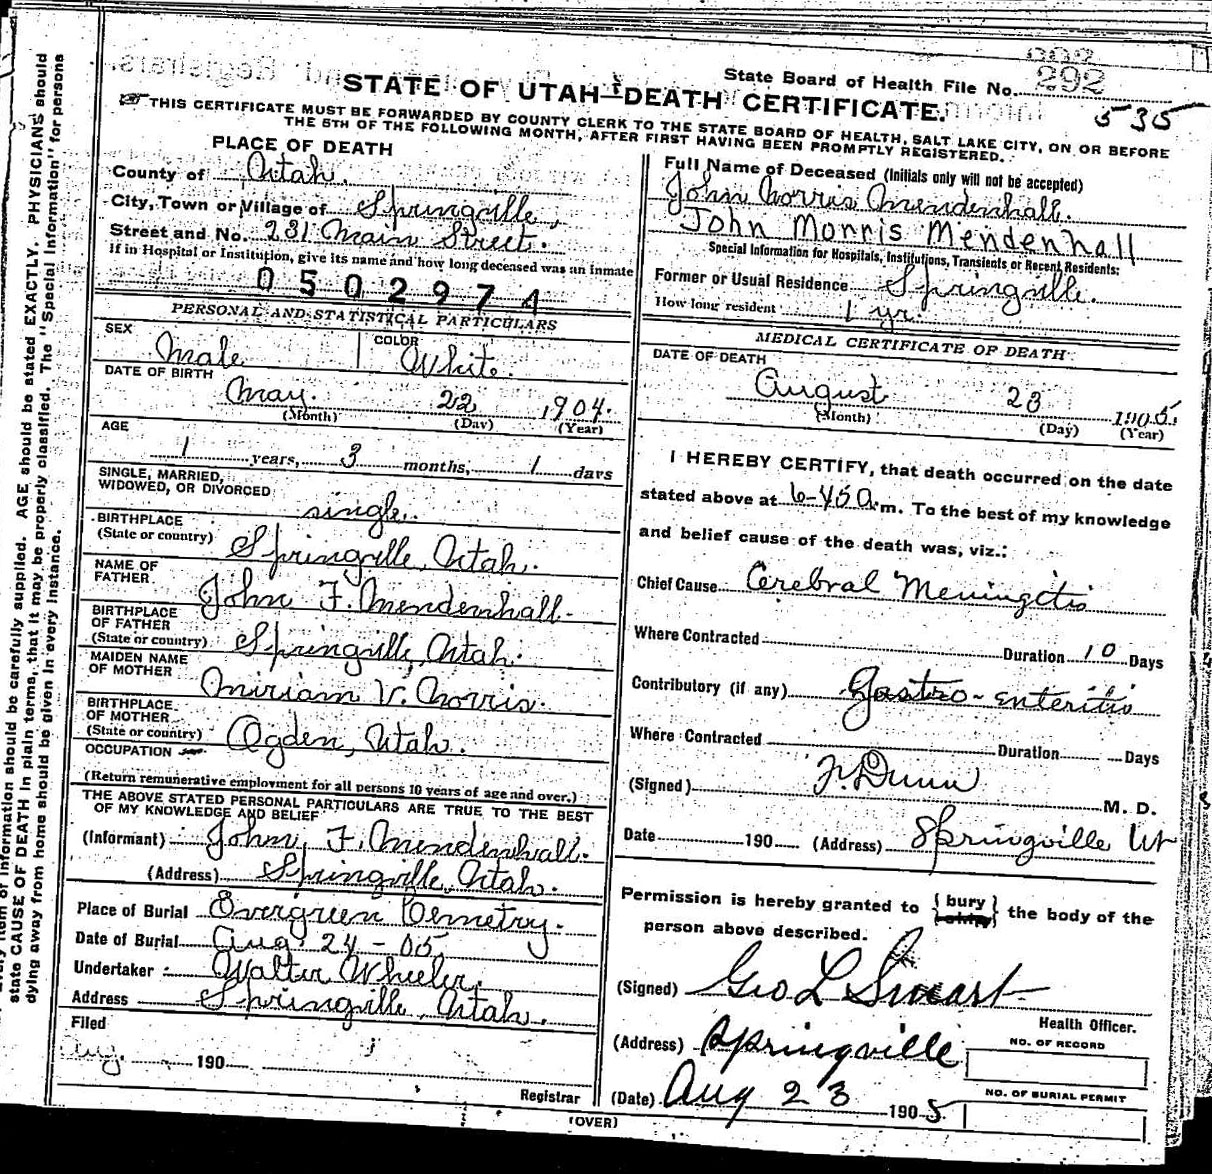 292
State Board of Health File No. 292
STATE OF UTAH—DEATH CERTIFICATE.
535
THIS CERTIFICATE MUST BE FORWARDED BY COUNTY CLERK TO THE STATE BOARD OF HEALTH, SALT LAKE CITY, ON OR BEFORE
THE 5TH OF THE FOLLOWING MONTH, AFTER FIRST HAVING BEEN PROMPTLY REGISTERED.
PLACE OF DEATH
County of Utah.
City, Town or Village of Springville,
Street and No. 231 Main Street.
If in Hospital or Institution, give its name and how long deceased was an inmate
0502974
PERSONAL AND STATISTICAL PARTICULARS
SEX Male
COLOR White.
DATE OF BIRTH May. 22 1904.
(Month) (Day) (Year)
AGE
1 years, 3 months, 1 days
SINGLE, MARRIED,
WIDOWED, OR DIVORCED single.
BIRTHPLACE
(State or country) Springville, Utah.
NAME OF
FATHER John F. Mendenhall.
BIRTHPLACE
OF FATHER
(State or country) Springville, Utah.
MAIDEN NAME
OF MOTHER Miriam V. Norris.
BIRTHPLACE
OF MOTHER
(State or country) Ogden, Utah.
OCCUPATION
(Return remunerative employment for all persons 10 years of age and over.)
THE ABOVE STATED PERSONAL PARTICULARS ARE TRUE TO THE BEST
OF MY KNOWLEDGE AND BELIEF
(Informant) John F. Mendenhall.
(Address) Springville, Utah.
Place of Burial Evergreen Cemetry.
Date of Burial Aug 24-05
Undertaker Walter Wheeler.
Address Springville, Utah.
Filed
Aug. 190
Registrar
Full Name of Deceased (Initials only will not be accepted)
John Norris Mendenhall.
John Morris Mendenhall
Special Information for Hospitals, Institutions, Transients or Recent Residents:
Former or Usual Residence Springville.
How long resident 1 yr.
MEDICAL CERTIFICATE OF DEATH
DATE OF DEATH
August 23 1905.
(Month) (Day) (Year)
I HEREBY CERTIFY, that death occurred on the date
stated above at 6-45 a.m. To the best of my knowledge
and belief cause of the death was, viz.:
Chief Cause Cerebral Meningitis
Where Contracted Duration 10 Days
Contributory (if any) Gastro-enteritis
Where Contracted Duration Days
(Signed) F. Dunn M. D.
Date 190 (Address) Springville Ut
Permission is hereby granted to { bury } the body of the
person above described.
(Signed) Geo L Smart
Health Officer.
(Address) Springville
(Date) Aug 23 1905
NO. OF RECORD
NO. OF BURIAL PERMIT
(OVER)
information should be carefully supplied. AGE should be stated EXACTLY. PHYSICIANS should
state CAUSE OF DEATH in plain terms, that it may be properly classified. The "Special Information" for persons
dying away from home should be given in every instance.